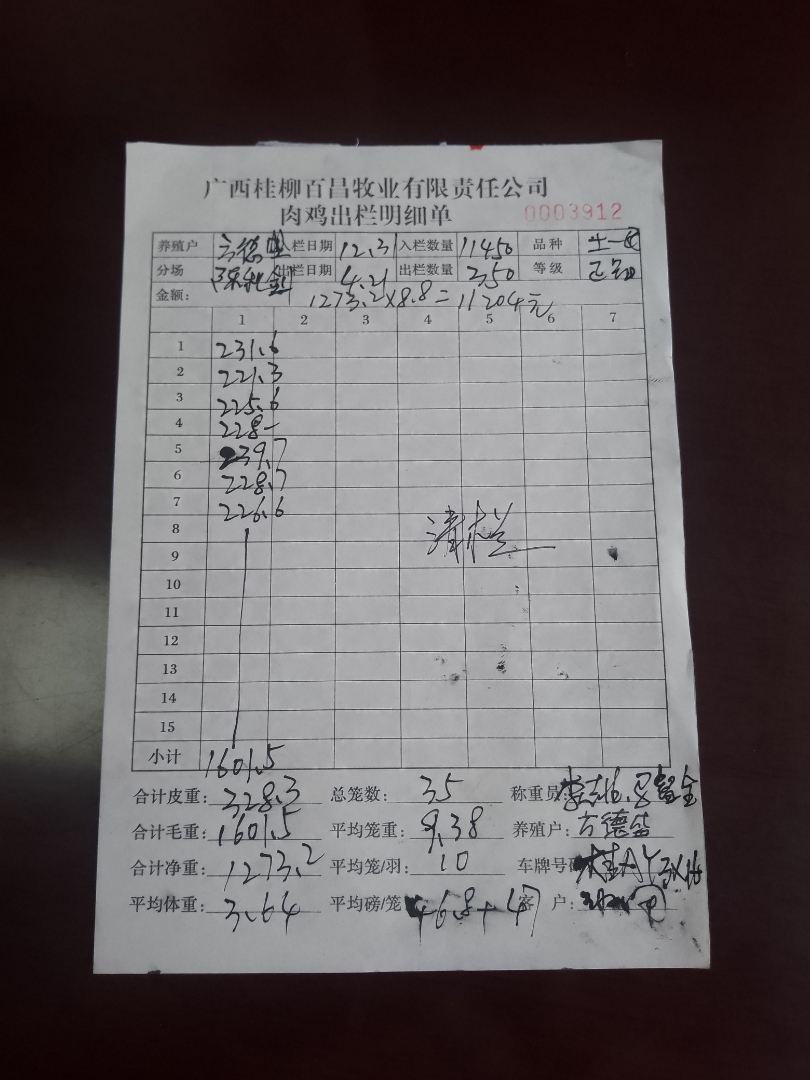 广西桂柳百昌牧业有限责任公司
肉鸡出栏明细单 0003912
养殖户 古德 入栏日期 12.31 入栏数量 11450 品种 土一
分场 出栏日期 4.21 出栏数量 350 等级
金额: 1273.2×8.8=11204元
1 2 3 4 5 6 7
1 231.6
2 221.3
3 225.6
4 228-
5 239.7
6 228.7
7 226.6
8 清栏
9
10
11
12
13
14
15
小计 1601.5
合计皮重: 328.3 总笼数: 35 称重员:
合计毛重: 1601.5 平均笼重: 9.38 养殖户: 古德
合计净重: 1273.2 平均笼/羽: 10 车牌号码
平均体重: 3.64 平均磅/笼 46.8+47 客 户: